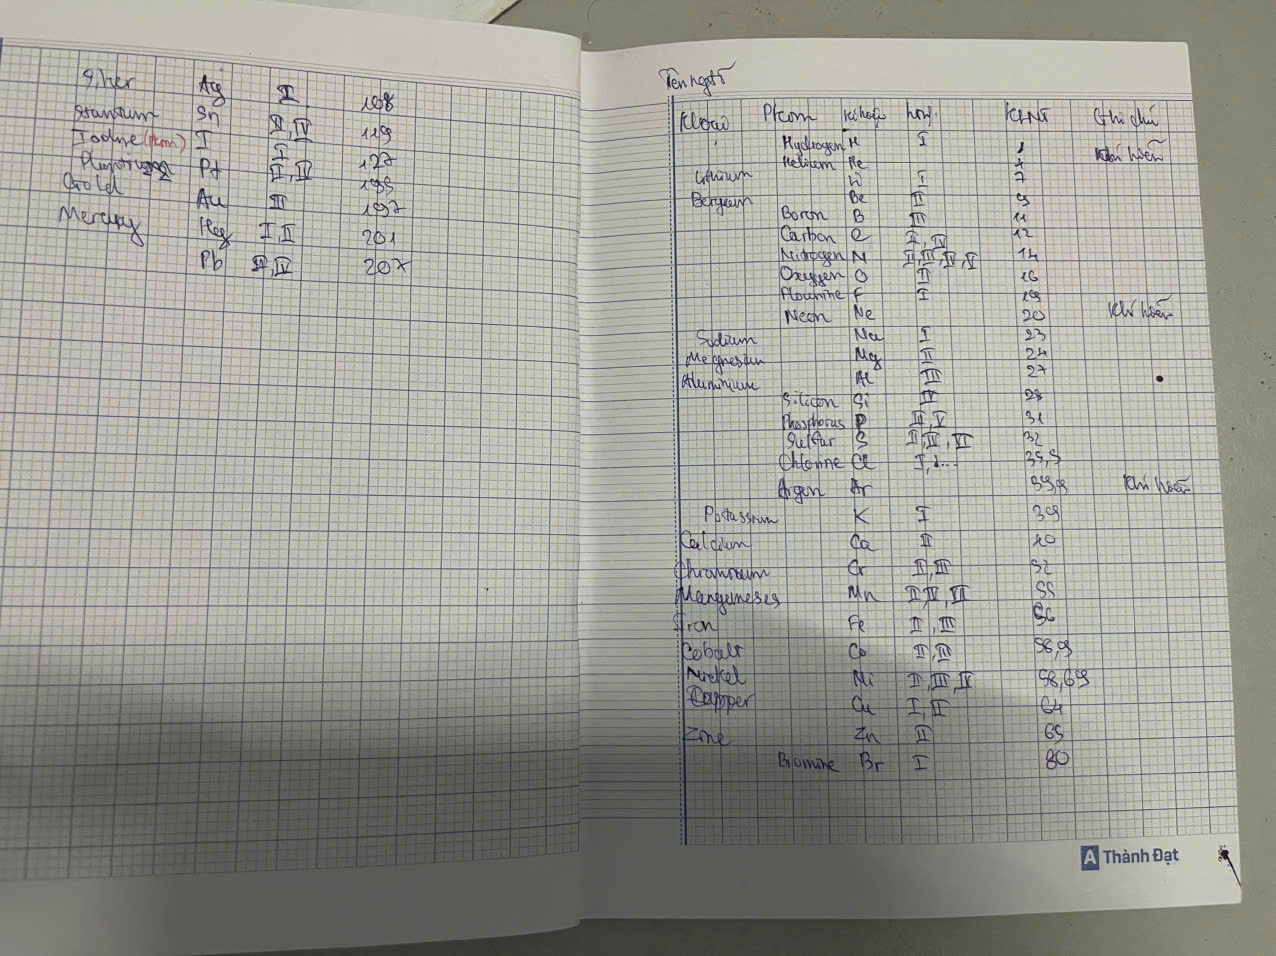 Silver Ag I 108
Stannum Sn II, IV 119
Iodine (pkim) I I 127
Pt II, IV 195
Gold Au III 197
Mercury Hg I, II 201
Pb II, IV 207
Tên ngtố
Kloại Pkim kí hiệu htrị KLNT Ghi chú
Hydrogen H I 1
Helium He 4 khí hiếm
Lithium Li I 7
Be II 9
Boron B III 11
Carbon C II, IV 12
Nitrogen N II, III, IV, V 14
Oxygen O II 16
Flourine F I 19
Neon Ne 20 khí hiếm
Sodium Na I 23
Magnesium Mg II 24
Aluminium Al III 27
Silicon Si IV 28
Phosphorus P III, V 31
Sulfur S II, IV, VI 32
Chlorine Cl I,... 35,5
Argon Ar 39,9 khí hiếm
Potassium K I 39
Calcium Ca II 40
Chromium Cr II, III 52
Manganeses Mn II, IV, VII 55
Iron Fe II, III 56
Cobalt Co II, III 58,9
Nickel Ni II, III, IV 58,69
Copper Cu I, II 64
Zinc Zn II 65
Bromine Br I 80
A Thành Đạt